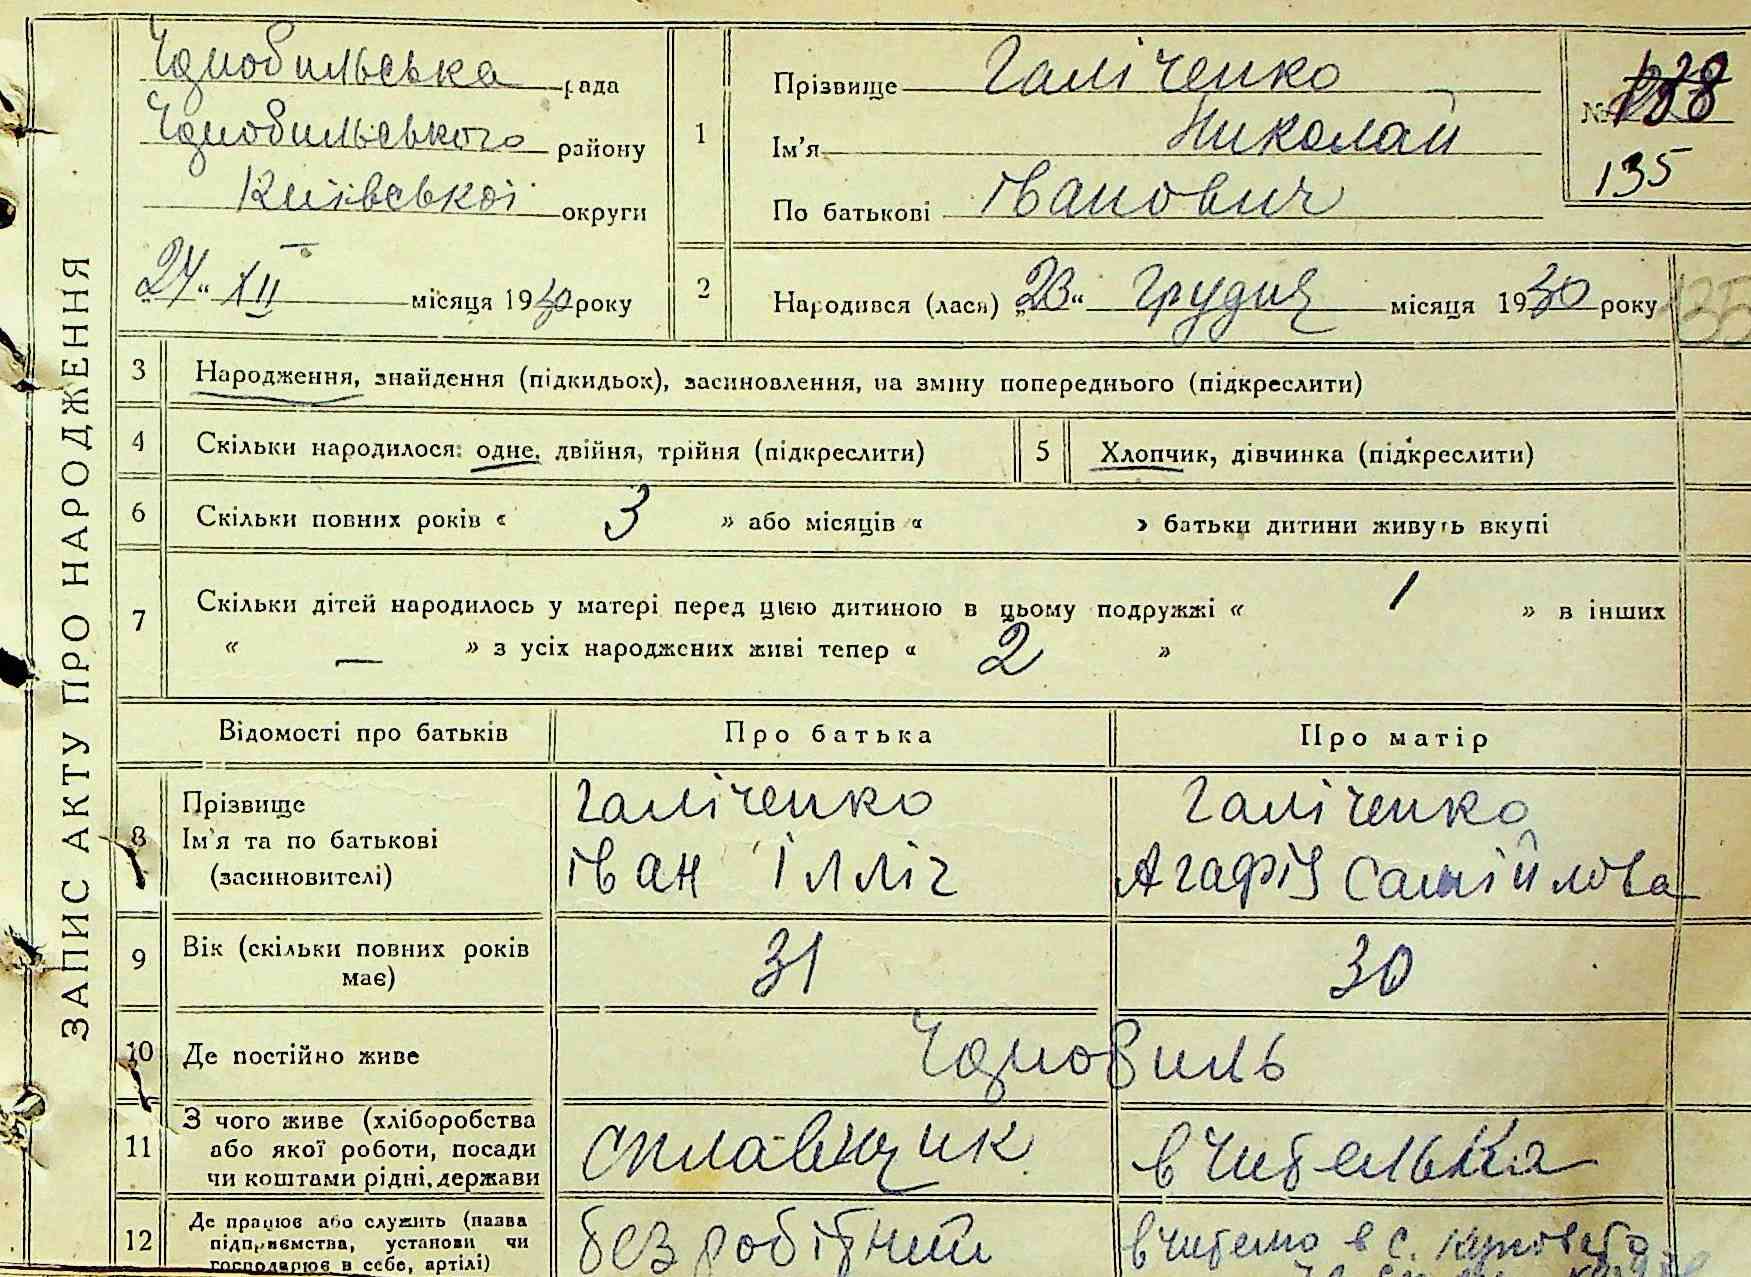 ЗАПИС АКТУ ПРО НАРОДЖЕННЯ
Чорнобильська рада
Чорнобильського району
Київської округи
„24“ XII місяця 1930 року
1
Прізвище Галіченко
Ім'я Николай
По батькові Іванович
№ 138
135
2
Народився (лася) „23“ грудня місяця 1930 року
135
3 Народження, знайдення (підкидьок), засиновлення, на зміну попереднього (підкреслити)
4 Скільки народилося: одне, двійня, трійня (підкреслити)
5 Хлопчик, дівчинка (підкреслити)
6 Скільки повних років « 3 » або місяців « » батьки дитини живуть вкупі
7 Скільки дітей народилось у матері перед цією дитиною в цьому подружжі « 1 » в інших
« — » з усіх народжених живі тепер « 2 »
Відомості про батьків Про батька Про матір
8 Прізвище Галіченко Галіченко
Ім'я та по батькові Іван Ілліч Агафія Самійлова
(засиновителі)
9 Вік (скільки повних років має) 31 30
10 Де постійно живе Чорнобиль
11 З чого живе (хліборобства
або якої роботи, посади сплавщик вчителька
чи коштами рідні, держави
12 Де працює або служить (назва
підприємства, установи чи безробітний вчителю в с.
господарює в себе, артілі)